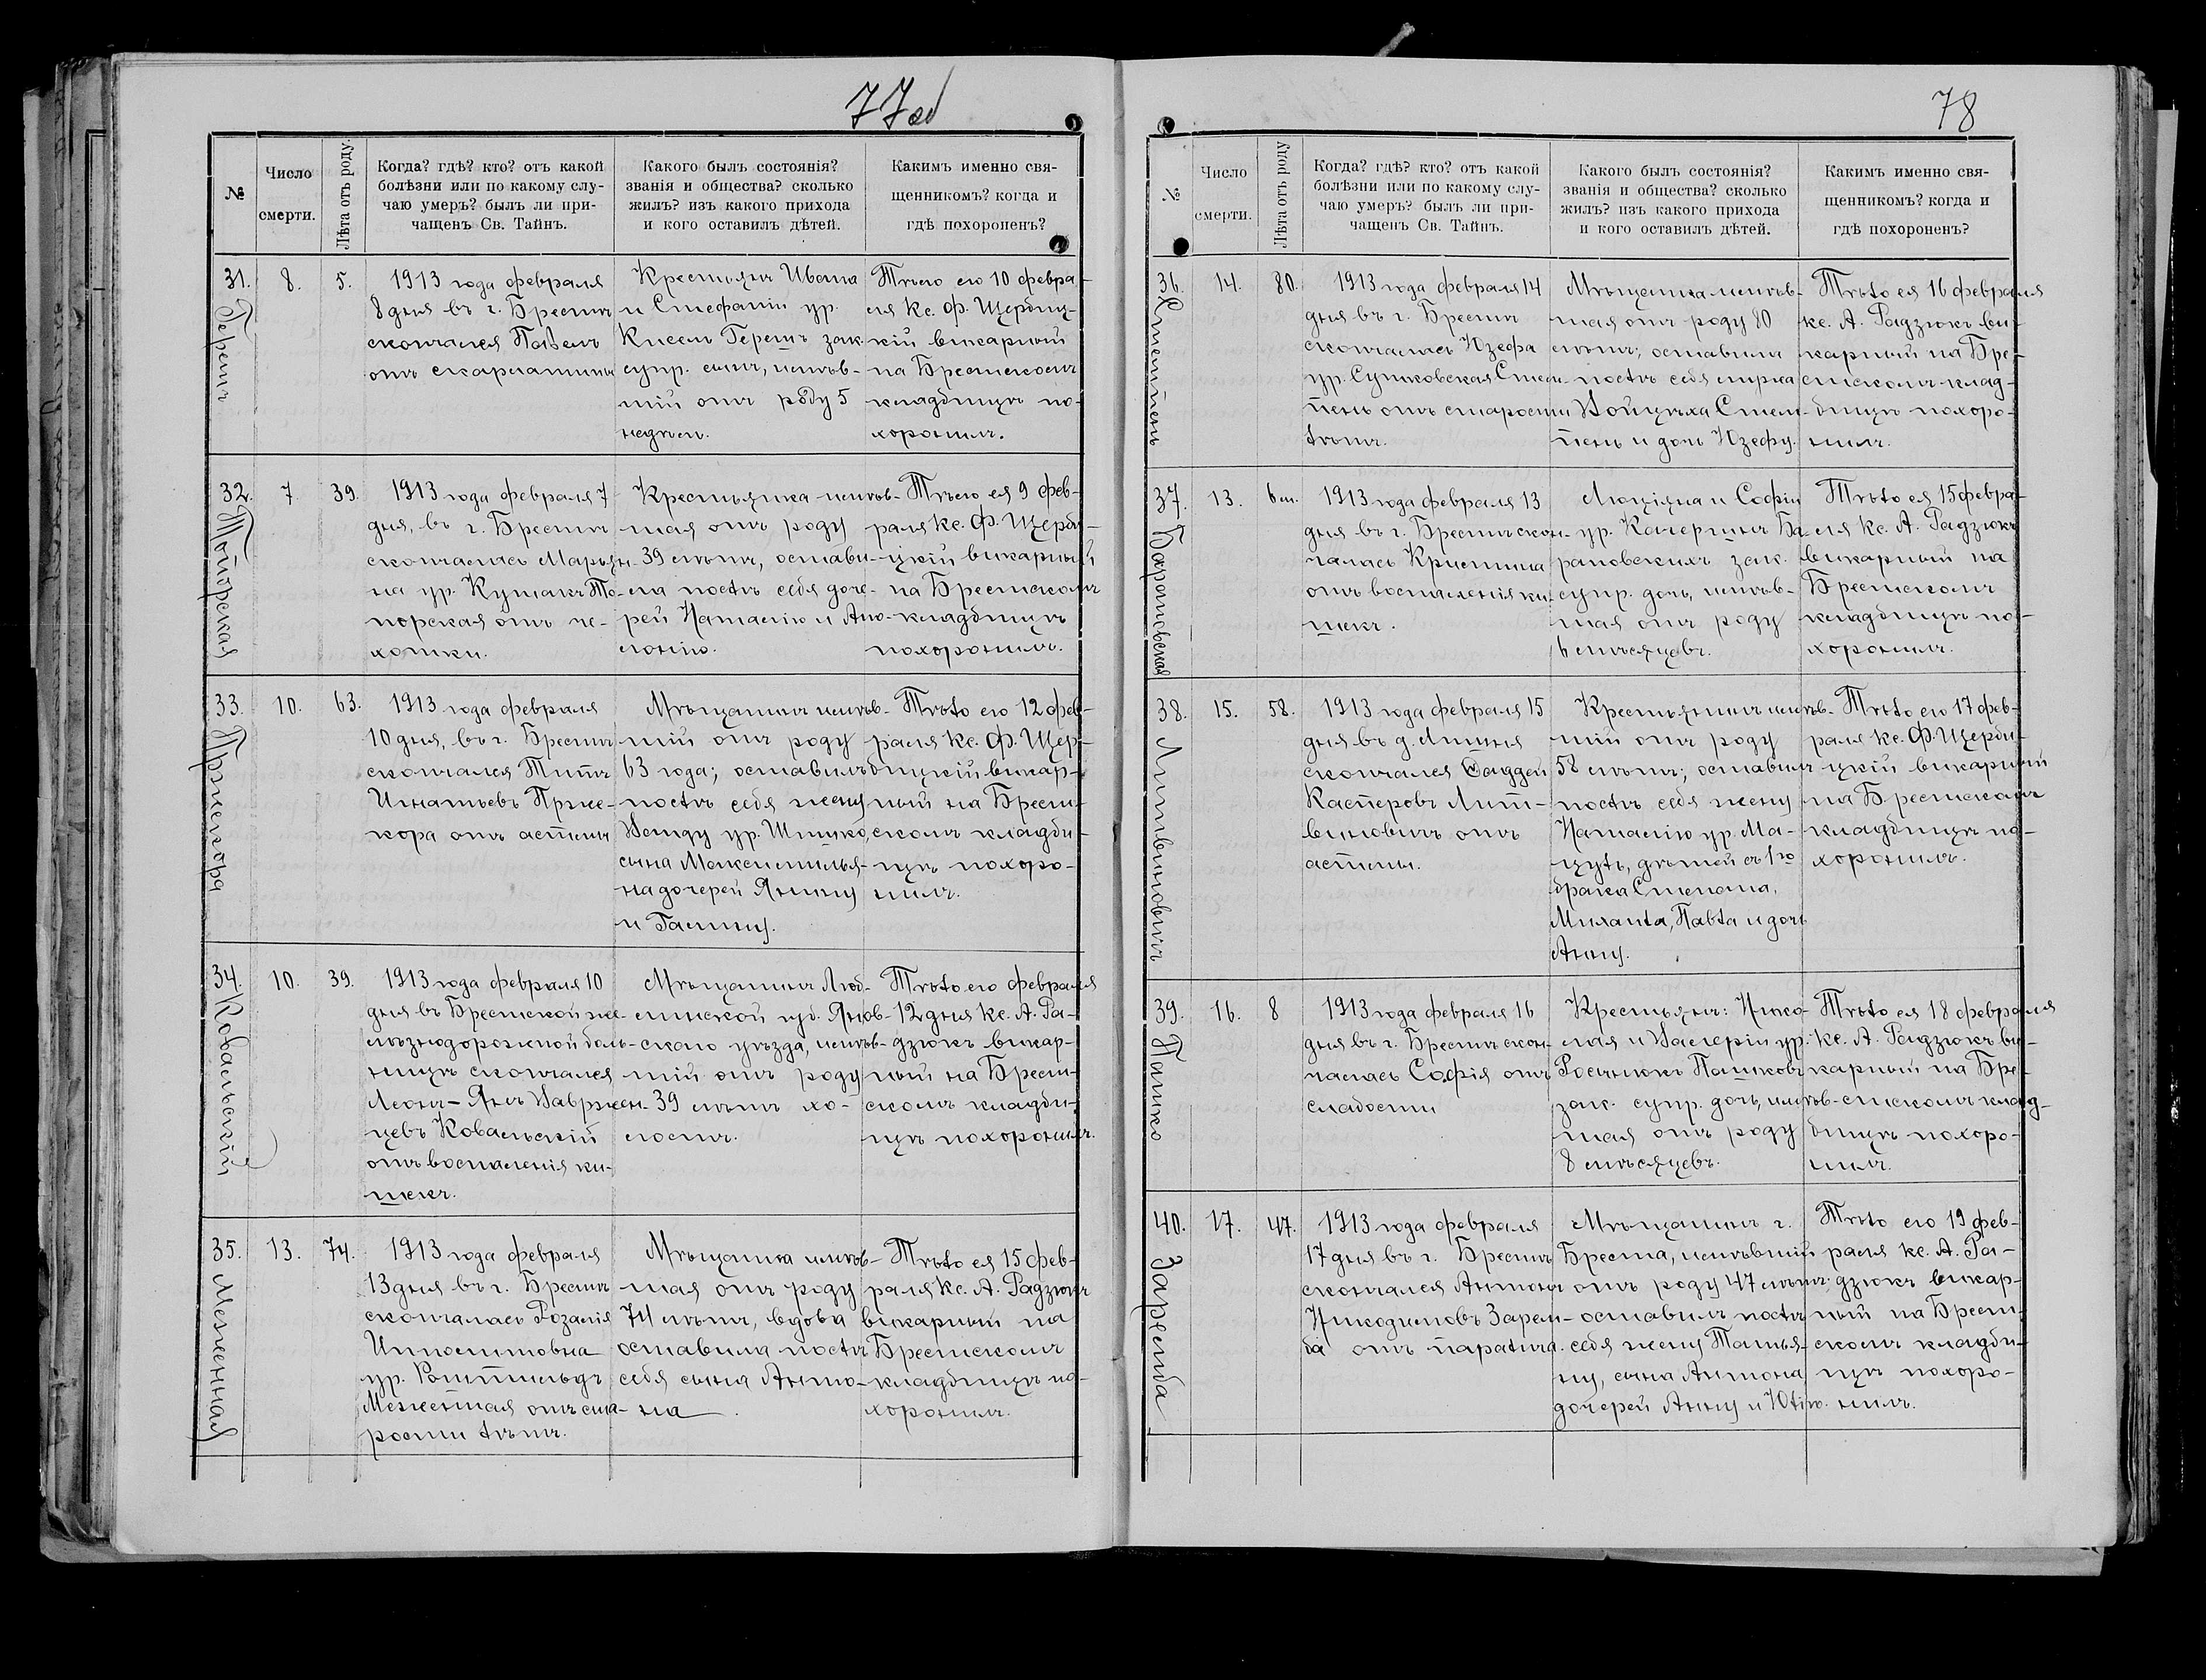 77 об
№
Число
смерти.
Лѣта отъ роду.
Когда? гдѣ? кто? отъ какой
болѣзни или по какому слу-
чаю умеръ? былъ ли при-
чащенъ Св. Тайнъ.
Какого былъ состоянія?
званія и общества? сколько
жилъ? изъ какого прихода
и кого оставилъ дѣтей.
Какимъ именно свя-
щенникомъ? когда и
гдѣ похороненъ?
31.
Герешъ
8.
5.
1913 года февраля
8 дня въ г. Брестѣ
скончался Павелъ
отъ скарлатины
Крестьянъ Ивана
и Стефаніи ур.
Кисель Герешъ зак.
супр. сынъ, имѣв-
шій отъ роду 5
недѣль.
Тѣло его 10 февра-
ля Кс. Ф. Щербиц-
кій викарный
на Брестскомъ
кладбищѣ по-
хоронилъ.
32.
Топорская
7.
39.
1913 года февраля 7
дня, въ г. Брестѣ
скончалась Марьян-
на ур. Кушакъ То-
порская отъ че-
хотки.
Крестьянка имѣв-
шая отъ роду
39 лѣтъ, остави-
ла послѣ себя доче-
рей Наталію и Апо-
лонію.
Тѣло ея 9 фев-
раля Кс. Ф. Щерби-
цкій викарный
на Брестскомъ
кладбищѣ
похоронилъ.
33.
Пржекора
10.
63.
1913 года февраля
10 дня, въ г. Брестѣ
скончался Титъ
Игнатьевъ Прже-
кора отъ астмы
Мѣщанинъ имѣв-
шій отъ роду
63 года; оставилъ
послѣ себя жену
Ванду ур. Шишко,
сына Максимилья-
на дочерей Янину
и Галину.
Тѣло его 12 фев-
раля Кс. Ф. Щер-
бицкій викар-
ный на Брест-
скомъ кладби-
щѣ похоро-
нилъ.
34.
Ковальскій
10.
39.
1913 года февраля 10
дня въ Брестской же-
лѣзнодорожной боль-
ницѣ скончался
Леонъ-Янъ Вавржен-
цевъ Ковальскій
отъ воспаленія ки-
шекъ.
Мѣщанинъ Люб-
линской губ. Янов-
скаго уѣзда, имѣв-
шій отъ роду
39 лѣтъ хо-
лостъ.
Тѣло его февраля
12 дня Кс. А. Ра-
дзюкъ викар-
ный на Брест-
скомъ кладби-
щѣ похоронилъ.
35.
Меженная
13.
74.
1913 года февраля
13 дня въ г. Брестѣ
скончалась Розалія
Ипполитовна
ур. Ротшильдъ
Меженная отъ ста-
рости лѣтъ.
Мѣщанка имѣв-
шая отъ роду
74 лѣтъ, вдова
оставила послѣ
себя сына Анто-
на.
Тѣло ея 15 фев-
раля Кс. А. Радзюкъ
викарный на
Брестскомъ
кладбищѣ по-
хоронилъ.
78
№
Число
смерти.
Лѣта отъ роду
Когда? гдѣ? кто? отъ какой
болѣзни или по какому слу-
чаю умеръ? былъ ли при-
чащенъ Св. Тайнъ.
Какого былъ состоянія?
званія и общества? сколько
жилъ? изъ какого прихода
и кого оставилъ дѣтей.
Какимъ именно свя-
щенникомъ? когда и
гдѣ похороненъ?
36.
Стемпень
14.
80.
1913 года февраля 14
дня въ г. Брестѣ
скончалась Юзефа
ур. Сушковская Стем-
пень отъ старости
лѣтъ.
Мѣщанка имѣв-
шая отъ роду 80
лѣтъ; оставила
послѣ себя мужа
Войцѣха Стем-
пень и дочь Юзефу.
Тѣло ея 16 февраля
кс. А. Радзюкъ ви-
карный на Бре-
стскомъ клад-
бищѣ похоро-
нилъ.
37.
Барановская
13.
6 м.
1913 года февраля 13
дня въ г. Брестѣ скон-
чалась Кристина
отъ воспаленія ки-
шекъ.
Люціяна и Софіи
ур. Качергинъ Ба-
рановскихъ зак.
супр. дочь, имѣв-
шая отъ роду
6 мѣсяцевъ.
Тѣло ея 15 февра-
ля Кс. А. Радзюкъ
викарный на
Брестскомъ
кладбищѣ по-
хоронилъ.
38.
Литвиновичъ
15.
58.
1913 года февраля 15
дня въ д. Лышня
скончался Фаддей
Касперовъ Лит-
виновичъ отъ
астмы.
Крестьянинъ имѣв-
шій отъ роду
58 лѣтъ; оставилъ
послѣ себя жену
Наталію ур. Ма-
цуль, дѣтей съ 1го
брака Степана,
Михаила, Павла и дочь
Анну.
Тѣло его 17 фев-
раля Кс. Ф. Щерби-
цкій викарный
на Брестскомъ
кладбищѣ по-
хоронилъ.
39.
Пашко
16.
8
1913 года февраля 16
дня въ г. Брестѣ скон-
чалась Софія отъ
слабости
Крестьянъ: Нико-
лая и Валеріи ур.
Росинюкъ Пашковъ
зак. супр. дочь, имѣв-
шая отъ роду
8 мѣсяцевъ.
Тѣло ея 18 февраля
Кс. А. Радзюкъ ви-
карный на Бре-
стскомъ клад-
бищѣ похоро-
нилъ.
40.
Заремба
17.
47.
1913 года февраля
17 дня въ г. Брестѣ
скончался Антонъ
Никодимовъ Зарем-
ба отъ паралича.
Мѣщанинъ г.
Бреста, имѣвшій
отъ роду 47 лѣтъ
оставилъ послѣ
себя жену Татья-
ну, сына Антона,
дочерей Анну и Юлію.
Тѣло его 19 фев-
раля кс. А. Ра-
дзюкъ викар-
ный на Брест-
скомъ кладби-
щѣ похоро-
нилъ.